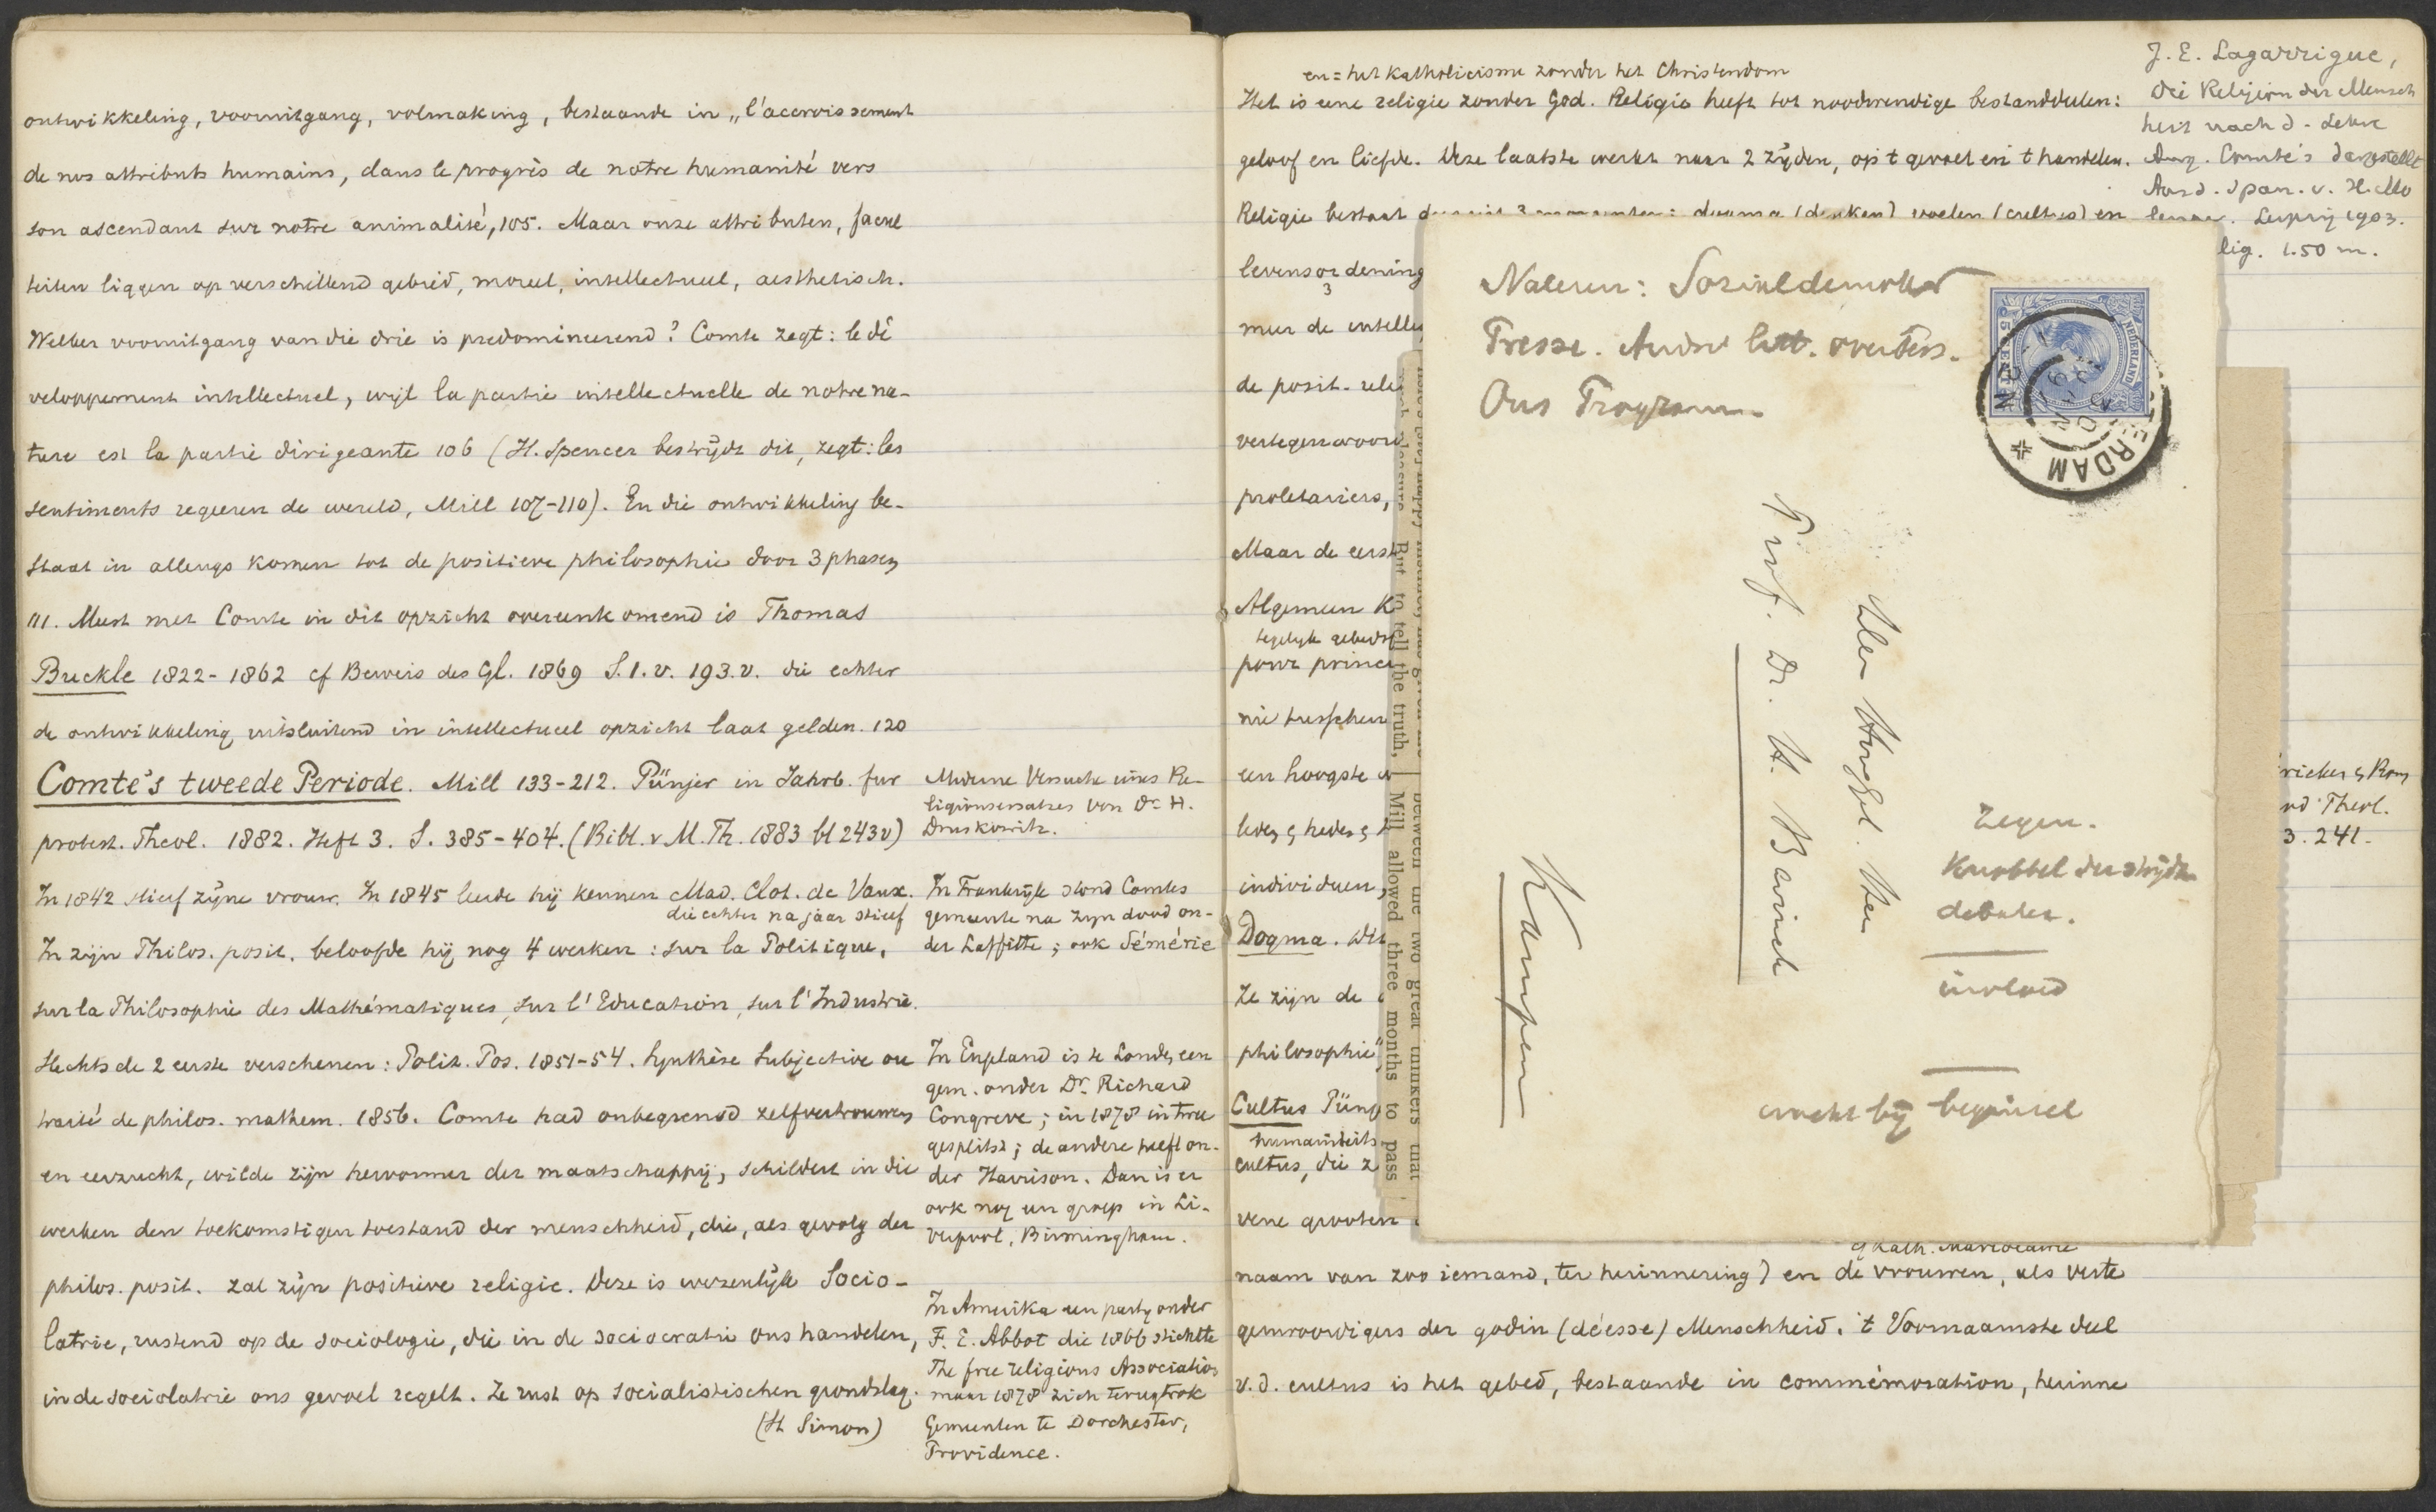 ontwikkeling, vooruitgang, volmaking, bestaande in „l'accroissement
de nos attributs humains, dans le progrès de notre humanité vers
son ascendant sur notre animalité, 105. Maar onze attributen, facul
teiten liggen op verschillend gebied, moreel, intellectueel, aesthetisch.
Welker vooruitgang van die drie is predomineerend? Comte zegt: le dé
veloppement intellectuel, wijl la partie intellectuelle de notre na-
ture est la partie dirigeante 106 (H. Spencer bestrijdt dit, zegt: les
sentiments regeeren de wereld, Mill 107-110). En die ontwikkeling be-
staat in allengs komen tot de positieve philosophie door 3 phasen
111. Meest met Comte in dit opzicht overeenkomend is Thomas
Buckle 1822-1862 cf Beweis des Gl. 1869 S. 1. v. 193. v. die echter
de ontwikkeling uitsluitend in intellectueel opzicht laat gelden. 120
Comte's tweede Periode. Mill 133-212. Pünjer in Jahrb. fur
protest. Theol. 1882. Heft 3. S. 385-404. (Bibl. v M. Th. 1883 bl 243v)
In 1842 stierf zijne vrouw. In 1845 leerde hij kennen Mad. Clot. de Vaux.
die echter na jaar stierf
In zijn Philos. posit. beloofde hij nog 4 werken: sur la Politique,
sur la Philosophie des Mathématiques, sur l'Education, sur l'Industrie.
Slechts de 2 eerste verschenen: Polit. Pos. 1851-54. Synthèse Subjective ou
traité de philos. mathem. 1856. Comte had onbegrensd zelfvertrouwen
en eerzucht, wilde zijn hervormer der maatschappij, schildert in die
werken den toekomstigen toestand der menschheid, die, als gevolg der
philos. posit. zal zijn positieve religie. Deze is wezenlijk Socio-
latrie, rustend op de sociologie, die in de sociocratie ons handelen,
in de sociolatrie ons gevoel regelt. Ze rust op socialistischen grondslag.
(St Simon)
Moderne Versuche eines Re-
ligionsersatzes von Dr. H.
Druskowitz.
In Frankrijk stond Comtes
gemeente na zijn dood on-
der Laffitte; ook Sémérie
In Engeland is te Londen een
gem. onder Dr. Richard
Congreve; in 1878 in twee
gesplitst; de andere helft on-
der Harrison. Dan is er
ook nog een groep in Li-
verpool, Birmingham.
In Amerika een partij onder
F. E. Abbot die 1866 stichtte
The free religious Association
maar 1878 zich terugtrok
Gemeenten te Dorchester,
Providence.
en = het Katholicisme zonder het Christendom
Het is eene religie zonder God. Religie heeft tot noodwendige bestanddeelen:
geloof en liefde. Deze laatste werkt naar 2 zijden, op 't gevoel en 't handelen.
Religie bestaat dogma (denken) voelen (cultus) en
levensordening
3
meer de intelle
de posit. reli
vertegenwoord
proletariers,
Maar de eerst
Algemeen K
pour princi
nie tusschen
een hoogste
individuen,
Dogma.
Ze zijn de
philosophie"
Cultus Pünj
humaniteits
cultus, die z
vene grooten
naam van zoo iemand, ter herinnering) en de vrouwen, als verte
genwoordigers der godin (déesse) Menschheid. 't Voornaamste deel
v. d. cultus is het gebed, bestaande in commémoration, herinne
J. E. Lagarrigue,
Die Religion der Mensch
heit nach d. Lehre
Aug. Comte's dargestellt
Leipzig 1903.
lig. 1.50 m.
But to tell the truth, Mill allowed three months to pass
between the two great thinkers that
Nalezen:
Presse.
Ons Program
NEDERLAND
CENT
ERDAM
Prof. Dr. H. Bavinck
Kampen
Zegen.
debater.
invloed
macht bij beginsel
nd Theol.
3. 241.